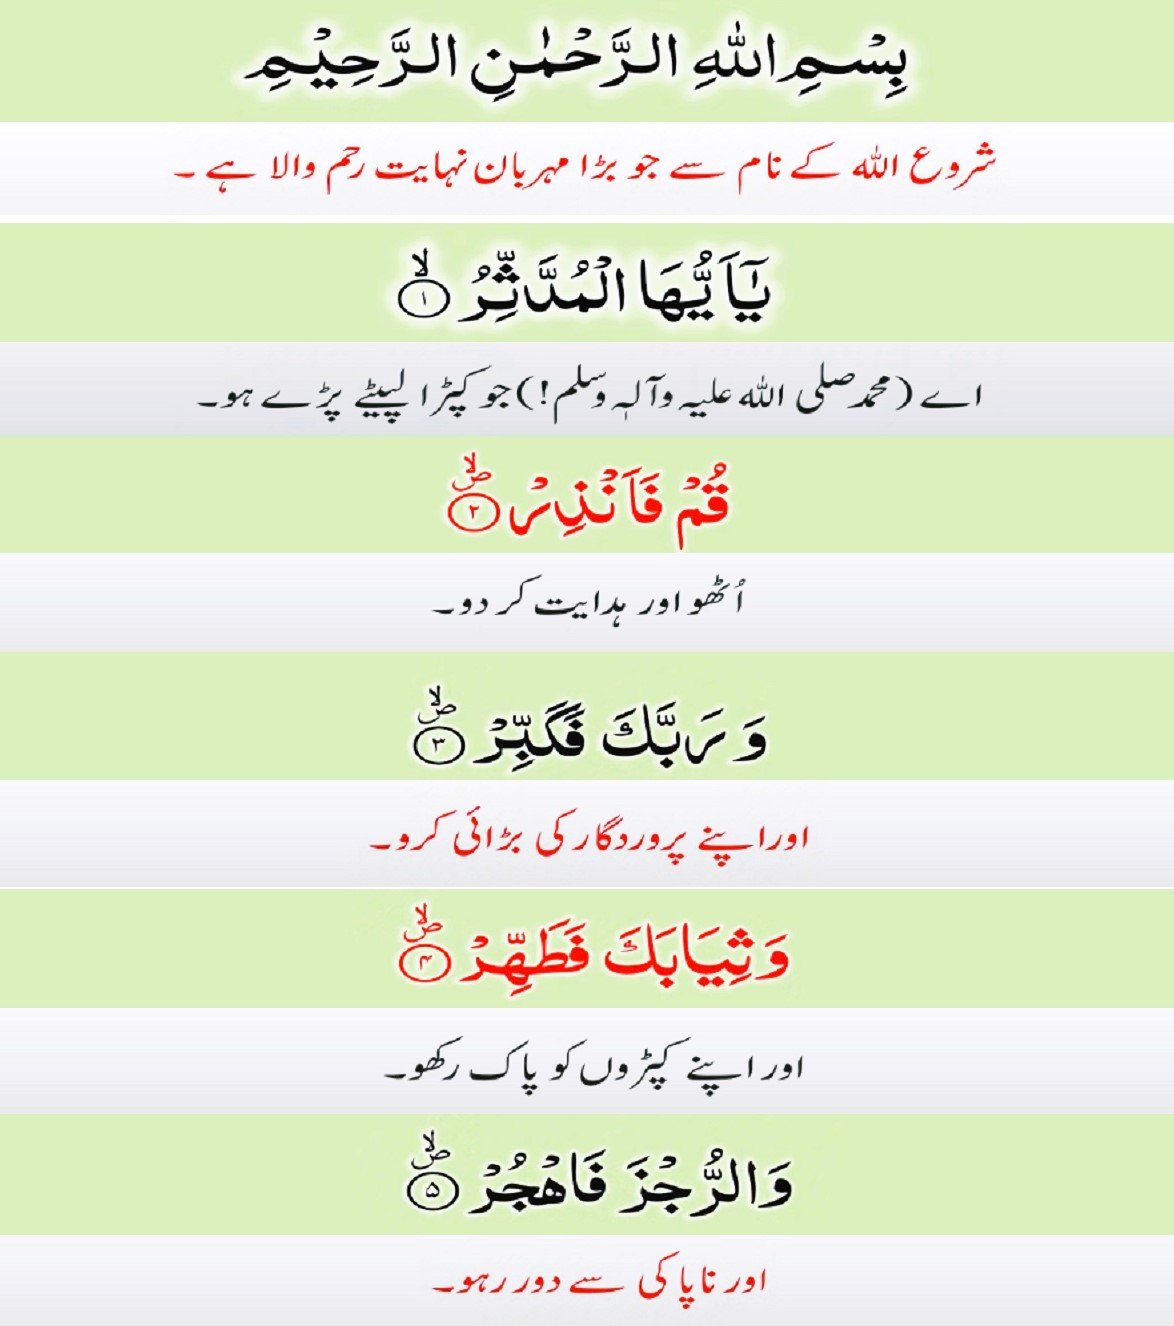 بِسْمِ اللهِ الرَّحْمٰنِ الرَّحِيْمِ
شروع اللہ کے نام سے جو بڑا مہربان نہایت رحم والا ہے ۔
يٰٓاَيُّهَا الْمُدَّثِّرُ ۙ‏﴿۱﴾
اے (محمد صلی اللہ علیہ وآلہٖ وسلم!) جو کپڑا لپیٹے پڑے ہو۔
قُمْ فَاَنْذِرْ ۪ۙ‏﴿۲﴾
اُٹھو اور ہدایت کر دو۔
وَ رَبَّكَ فَكَبِّرْ ۪ۙ‏﴿۳﴾
اور اپنے پروردگار کی بڑائی کرو۔
وَثِيَابَكَ فَطَهِّرْ ۪ۙ‏﴿۴﴾
اور اپنے کپڑوں کو پاک رکھو۔
وَالرُّجْزَ فَاهْجُرْ ۪ۙ‏﴿۵﴾
اور ناپاکی سے دور رہو۔